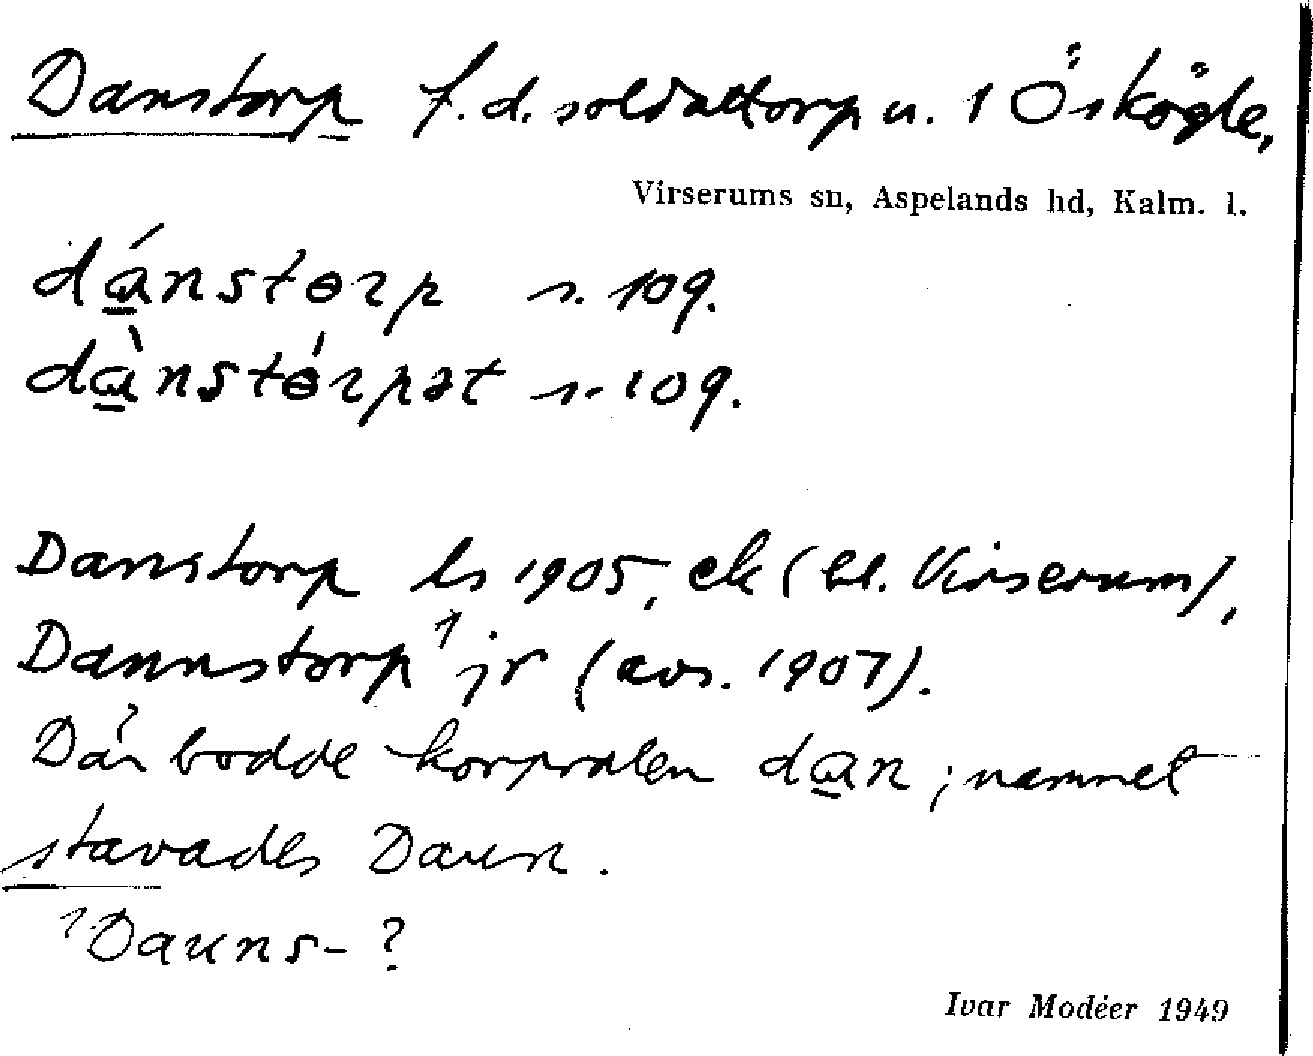 Danstorp f.d. soldattorp u. 1 Öskögle,
Virserums sn, Aspelands hd, Kalm. l.
dánstɵrp s. 109.
dànstɵ́rpət s. 109.
Danstorp ls 1905, ek (bl. Virserum),
Dannstorp¹ jr (avs. 1907).
Där bodde korpralen dan; namnet
stavades Daun.
¹Dauns-?
Ivar Modéer 1949